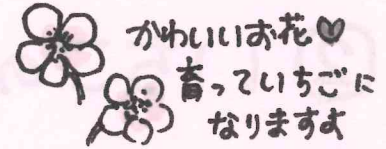 かわいいお花♥
育っていちごに
なりますよ